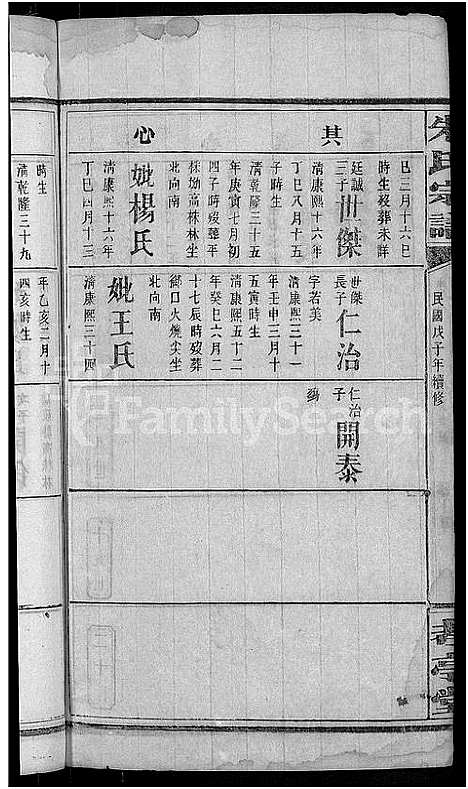 朱氏宗譜
民國戊子年續修
其
心
巳三月十六巳
時生歿葬未詳
廷誠三子
世傑
清康熙十六年
丁巳八月十五
子時生
清乾隆三十五
年庚寅七月初
四子時歿葬平
株坳高株林坐
北向南
妣楊氏
清康熙十六年
丁巳四月十三
世傑長子
仁治
字若美
清康熙三十一
年壬申三月十
五寅時生
清康熙五十二
年癸巳六月二
十七辰時歿葬
鄉口火燒尖坐
北向南
妣王氏
清康熙三十四
仁治子
開泰
殤
時生
清乾隆三十九
年乙亥二月十
四亥時生
FamilySearch